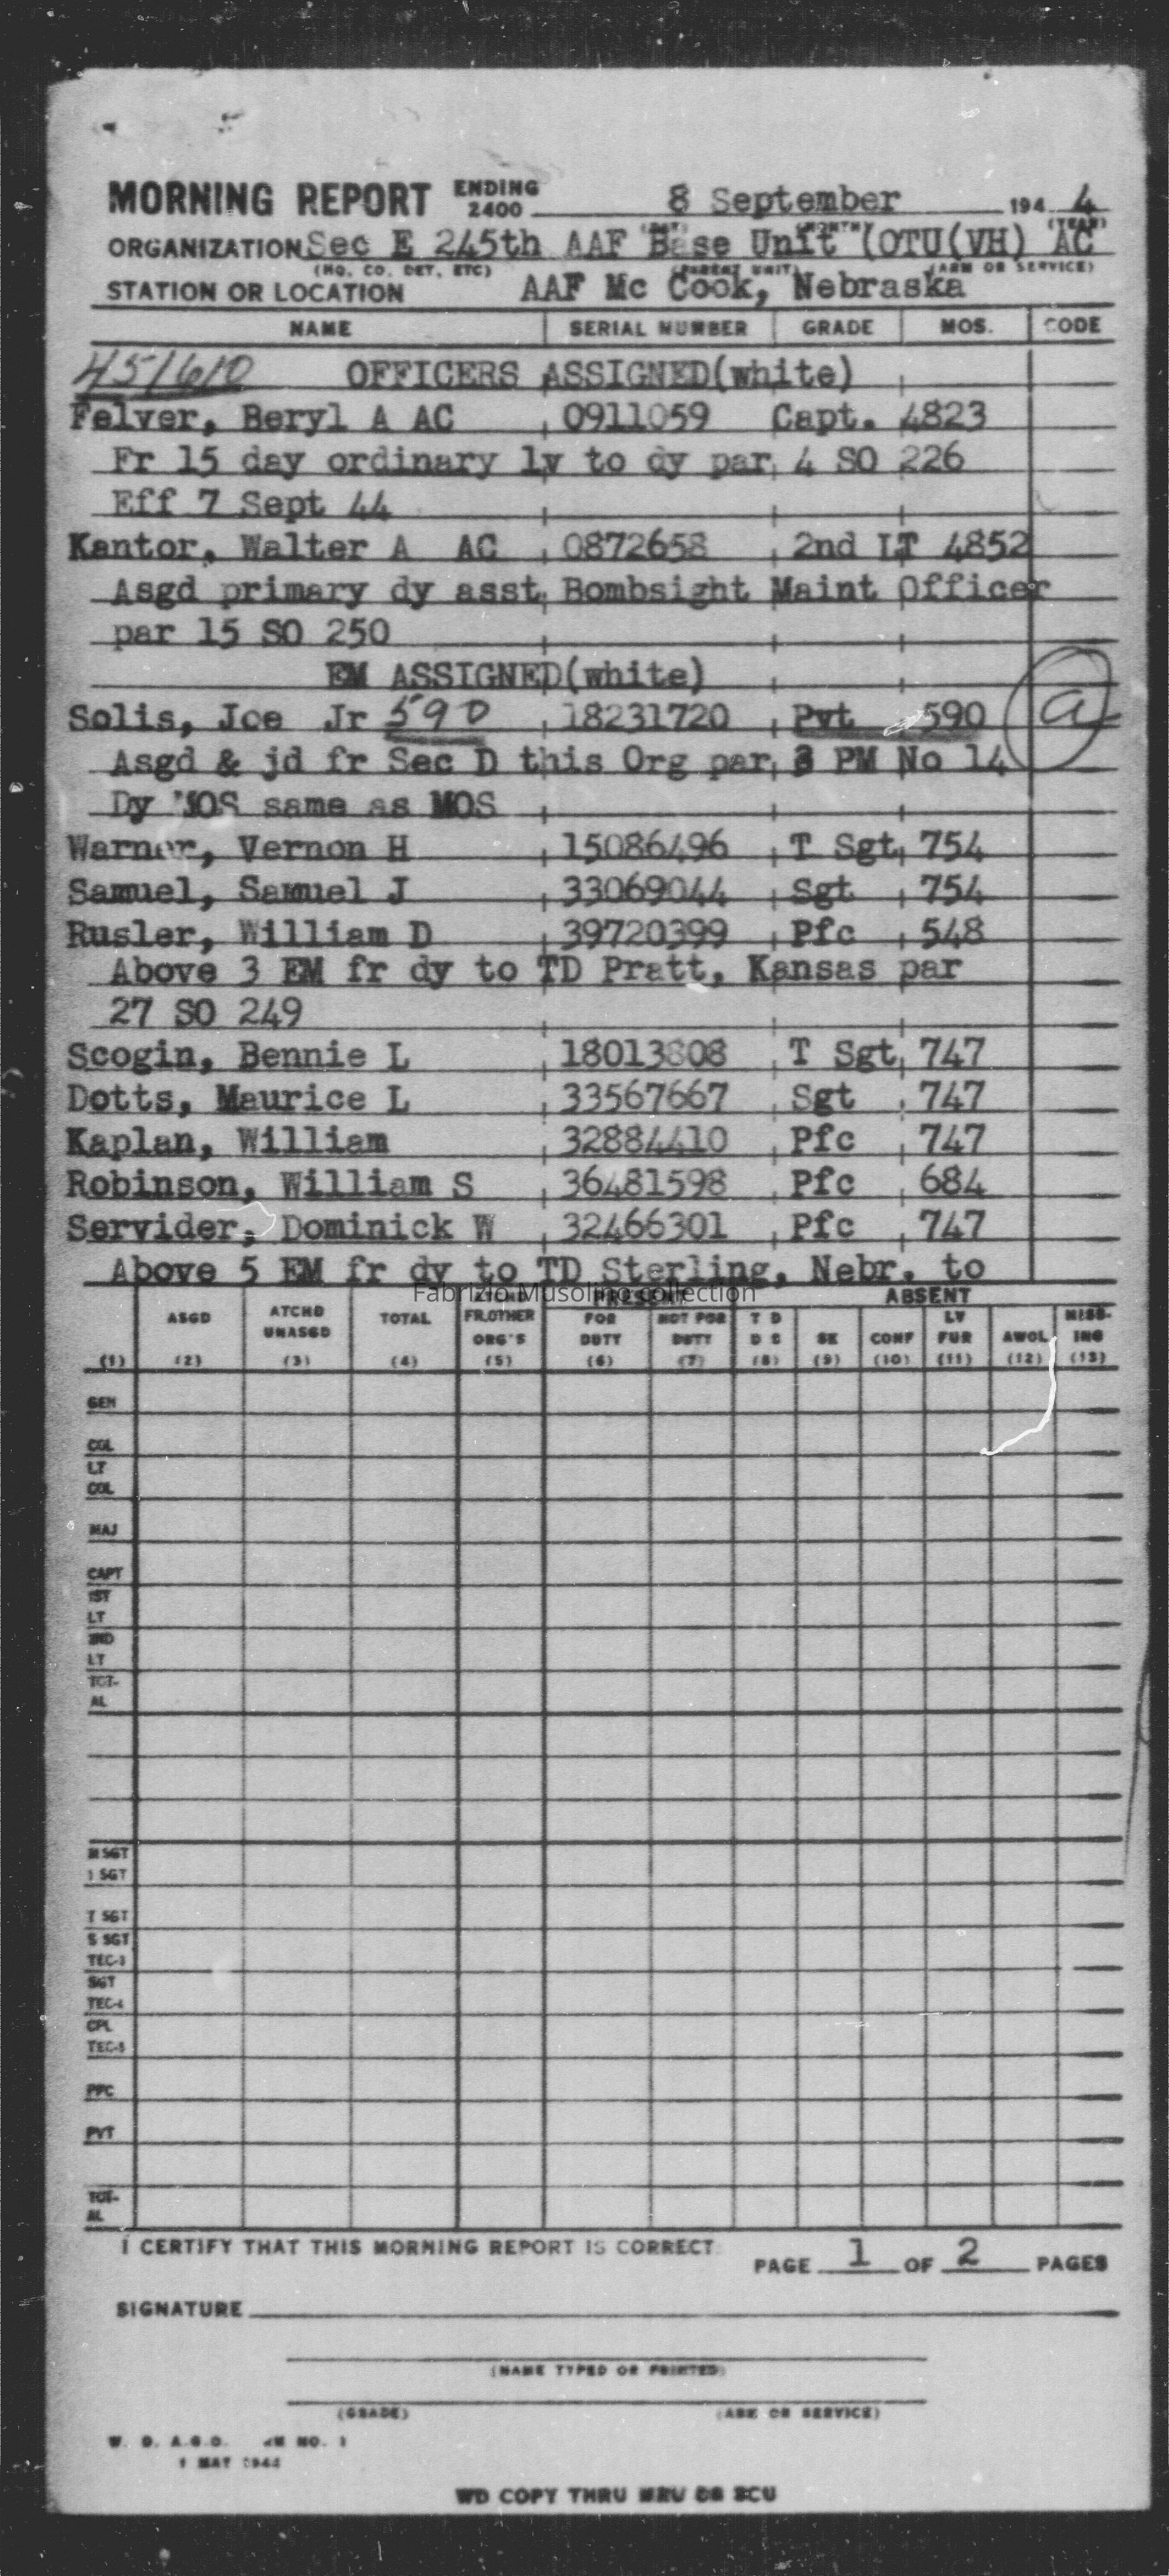 MORNING REPORT ENDING 2400 8 September 194 4
(DAY) (MONTH) (YEAR)
ORGANIZATION Sec E 245th AAF Base Unit (OTU(VH) AC
(HQ. CO. DET. ETC) (PARENT UNIT) (ARM OR SERVICE)
STATION OR LOCATION AAF Mc Cook, Nebraska
NAME SERIAL NUMBER GRADE MOS. CODE
451610 OFFICERS ASSIGNED(white)
Felver, Beryl A AC 0911059 Capt. 4823
Fr 15 day ordinary lv to dy par 4 SO 226
Eff 7 Sept 44
Kantor, Walter A AC 0872658 2nd LT 4852
Asgd primary dy asst Bombsight Maint Officer
par 15 SO 250
EM ASSIGNED(white)
Solis, Joe Jr 590 18231720 Pvt 590 a
Asgd & jd fr Sec D this Org par 3 PM No 14
Dy MOS same as MOS
Warner, Vernon H 15086496 T Sgt 754
Samuel, Samuel J 33069044 Sgt 754
Rusler, William D 39720399 Pfc 548
Above 3 EM fr dy to TD Pratt, Kansas par
27 SO 249
Scogin, Bennie L 18013808 T Sgt 747
Dotts, Maurice L 33567667 Sgt 747
Kaplan, William 32884410 Pfc 747
Robinson, William S 36481598 Pfc 684
Servider, Dominick W 32466301 Pfc 747
Above 5 EM fr dy to TD Sterling, Nebr. to
Fabrizio Musolino collection
PRESENT ABSENT
ASGD ATCHD UNASGD TOTAL FR.OTHER ORG'S FOR DUTY NOT FOR DUTY T D D S SK CONF LV FUR AWOL MISS-ING
(1) (2) (3) (4) (5) (6) (7) (8) (9) (10) (11) (12) (13)
GEN
COL
LT
COL
MAJ
CAPT
1ST
LT
2ND
LT
TOT-
AL
M SGT
1 SGT
T SGT
S SGT
TEC-3
SGT
TEC-4
CPL
TEC-5
PFC
PVT
TOT-
AL
I CERTIFY THAT THIS MORNING REPORT IS CORRECT
PAGE 1 OF 2 PAGES
SIGNATURE
(NAME TYPED OR PRINTED)
(GRADE) (ARM OR SERVICE)
W. D. A.G.O. NO. 1
1 MAY 1944
WD COPY THRU MRU OR SCU